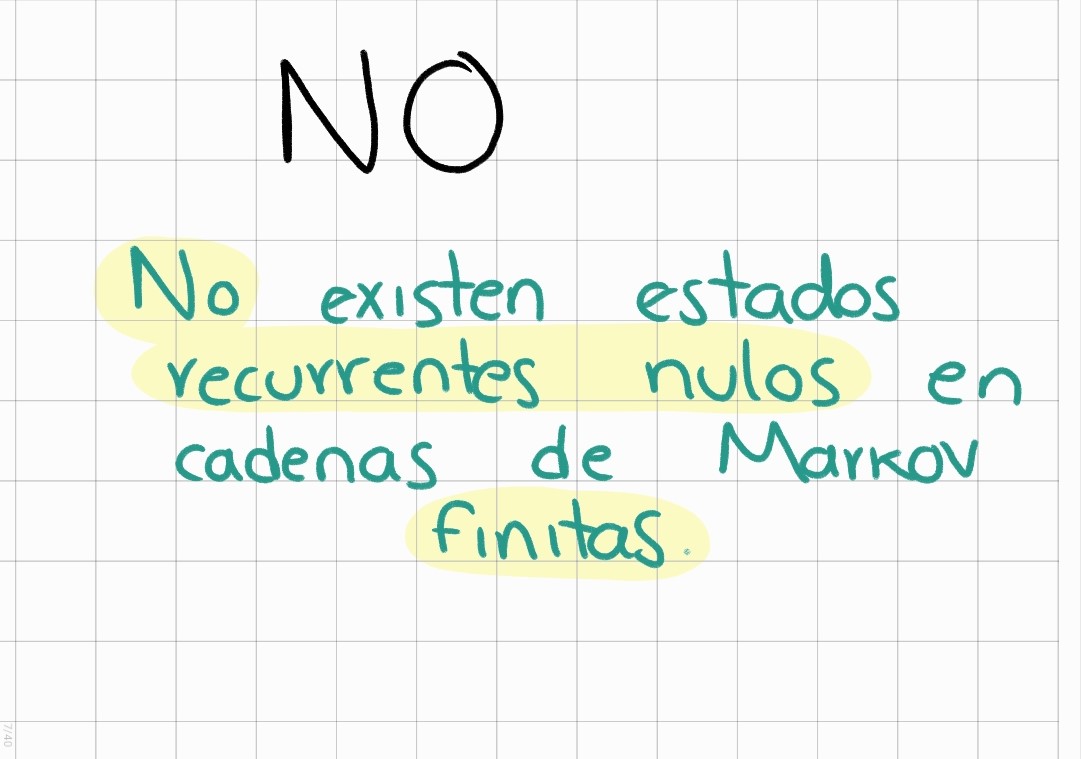 NO
No existen estados
recurrentes nulos en
cadenas de Markov
finitas.
7/40